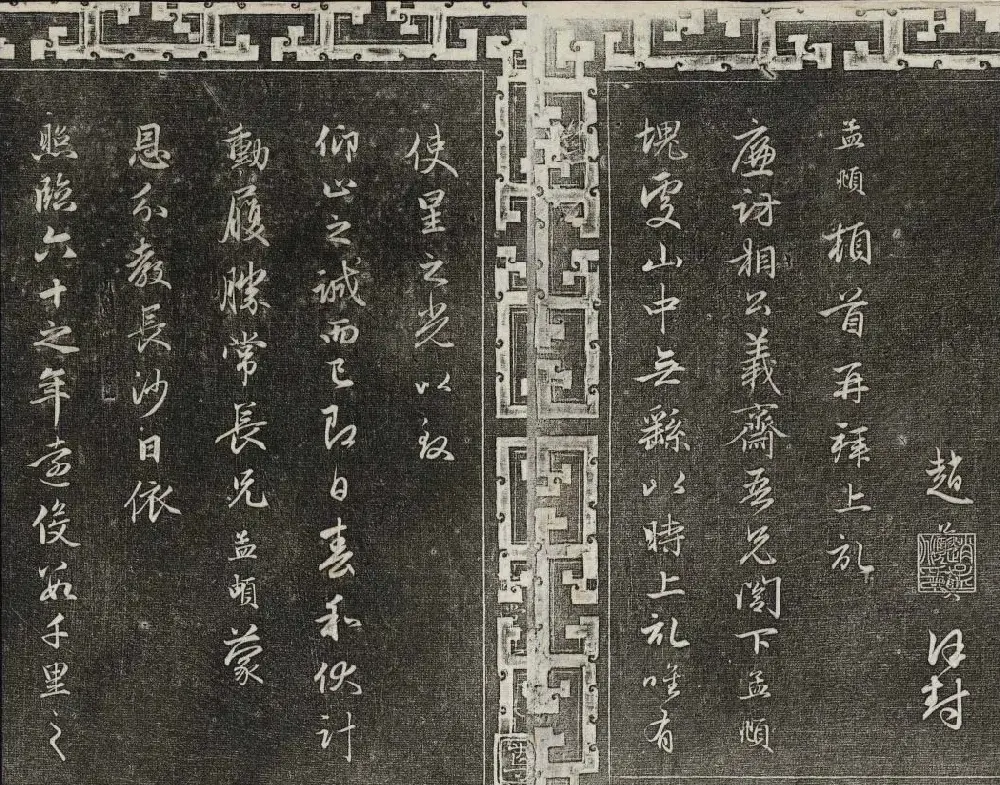 趙 謹封
孟頫頓首再拜上記
廉訪相公義齋吾兄閤下孟頫
塊處山中無繇以時上記唯有
使星之光以致
仰止之誠而已即日春和伏計
動履勝常長兄孟頫蒙
恩分教長沙自依
照臨六十之年遠役數千里之